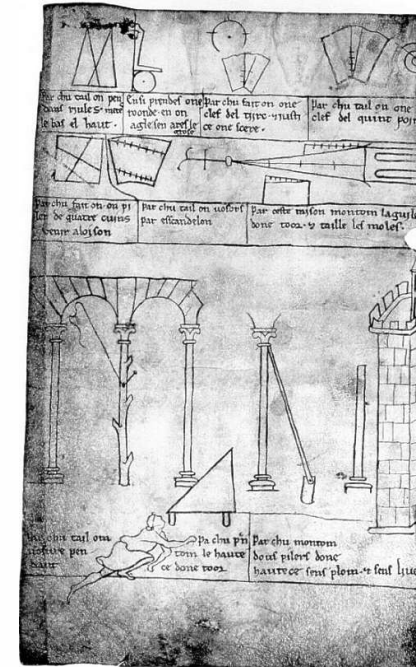 Par chu tail on pen
dans riules mete
le bas el haut.
Ensi prendes one
roonde en on
agle sen ares le
grose
Par chu fait on one
clef del tiirc
Par chu tail on one
clef del quint point
Par chu fait on on pi
ler de quatre cuins
venir a loison
Par chu tail on vosors
par escandelon
Par ceste raison montom laguile
done toor. & taille les moles.
Par chu tail om
vosure pen
dant
Par chu prent
tom le hautece
ce done toor
Par chu montom
dous pilers done
hautece sens plom. & sens livel